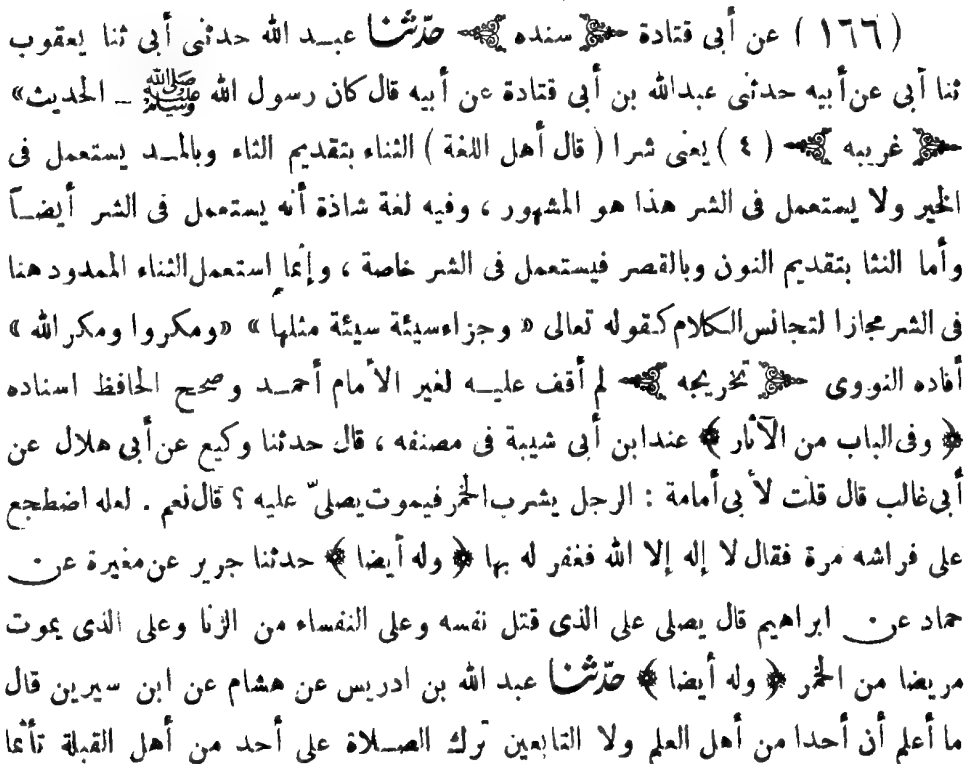 (١٦٦) عن أبى قتادة ﴿ سنده ﴾ حدّثنا عبد الله حدثنى أبى ثنا يعقوب
ثنا أبى عن أبيه حدثنى عبدالله بن أبى قتادة عن أبيه قال كان رسول الله ﷺ ــ الحديث»
﴿ غريبه ﴾ (٤) يعنى شرا ( قال أهل اللغة ) الثناء بتقديم الثاء وبالمد يستعمل فى
الخير ولا يستعمل فى الشر هذا هو المشهور ، وفيه لغة شاذة أنه يستعمل فى الشر أيضاً
وأما النثا بتقديم النون وبالقصر فيستعمل فى الشر خاصة ، وإنما استعمل الثناء الممدود هنا
فى الشر مجازا لتجانس الكلام كقوله تعالى « وجزاء سيئة سيئة مثلها » «ومكروا ومكر الله »
أفاده النووى ﴿ تخريجه ﴾ لم أقف عليه لغير الأمام أحمد وصحح الحافظ اسناده
﴿ وفى الباب من الآثار ﴾ عند ابن أبى شيبة فى مصنفه ، قال حدثنا وكيع عن أبى هلال عن
أبى غالب قال قلت لأبى أمامة : الرجل يشرب الخمر فيموت يصلىّ عليه ؟ قال نعم . لعله اضطجع
على فراشه مرة فقال لا إله إلا الله فغفر له بها ﴿ وله أيضا ﴾ حدثنا جرير عن مغيرة عن
حماد عن ابراهيم قال يصلى على الذى قتل نفسه وعلى النفساء من الزنا وعلى الذى يموت
مريضا من الخمر ﴿ وله أيضا ﴾ حدّثنا عبد الله بن ادريس عن هشام عن ابن سيرين قال
ما أعلم أن أحدا من أهل العلم ولا التابعين ترك الصلاة على أحد من أهل القبلة تأثما